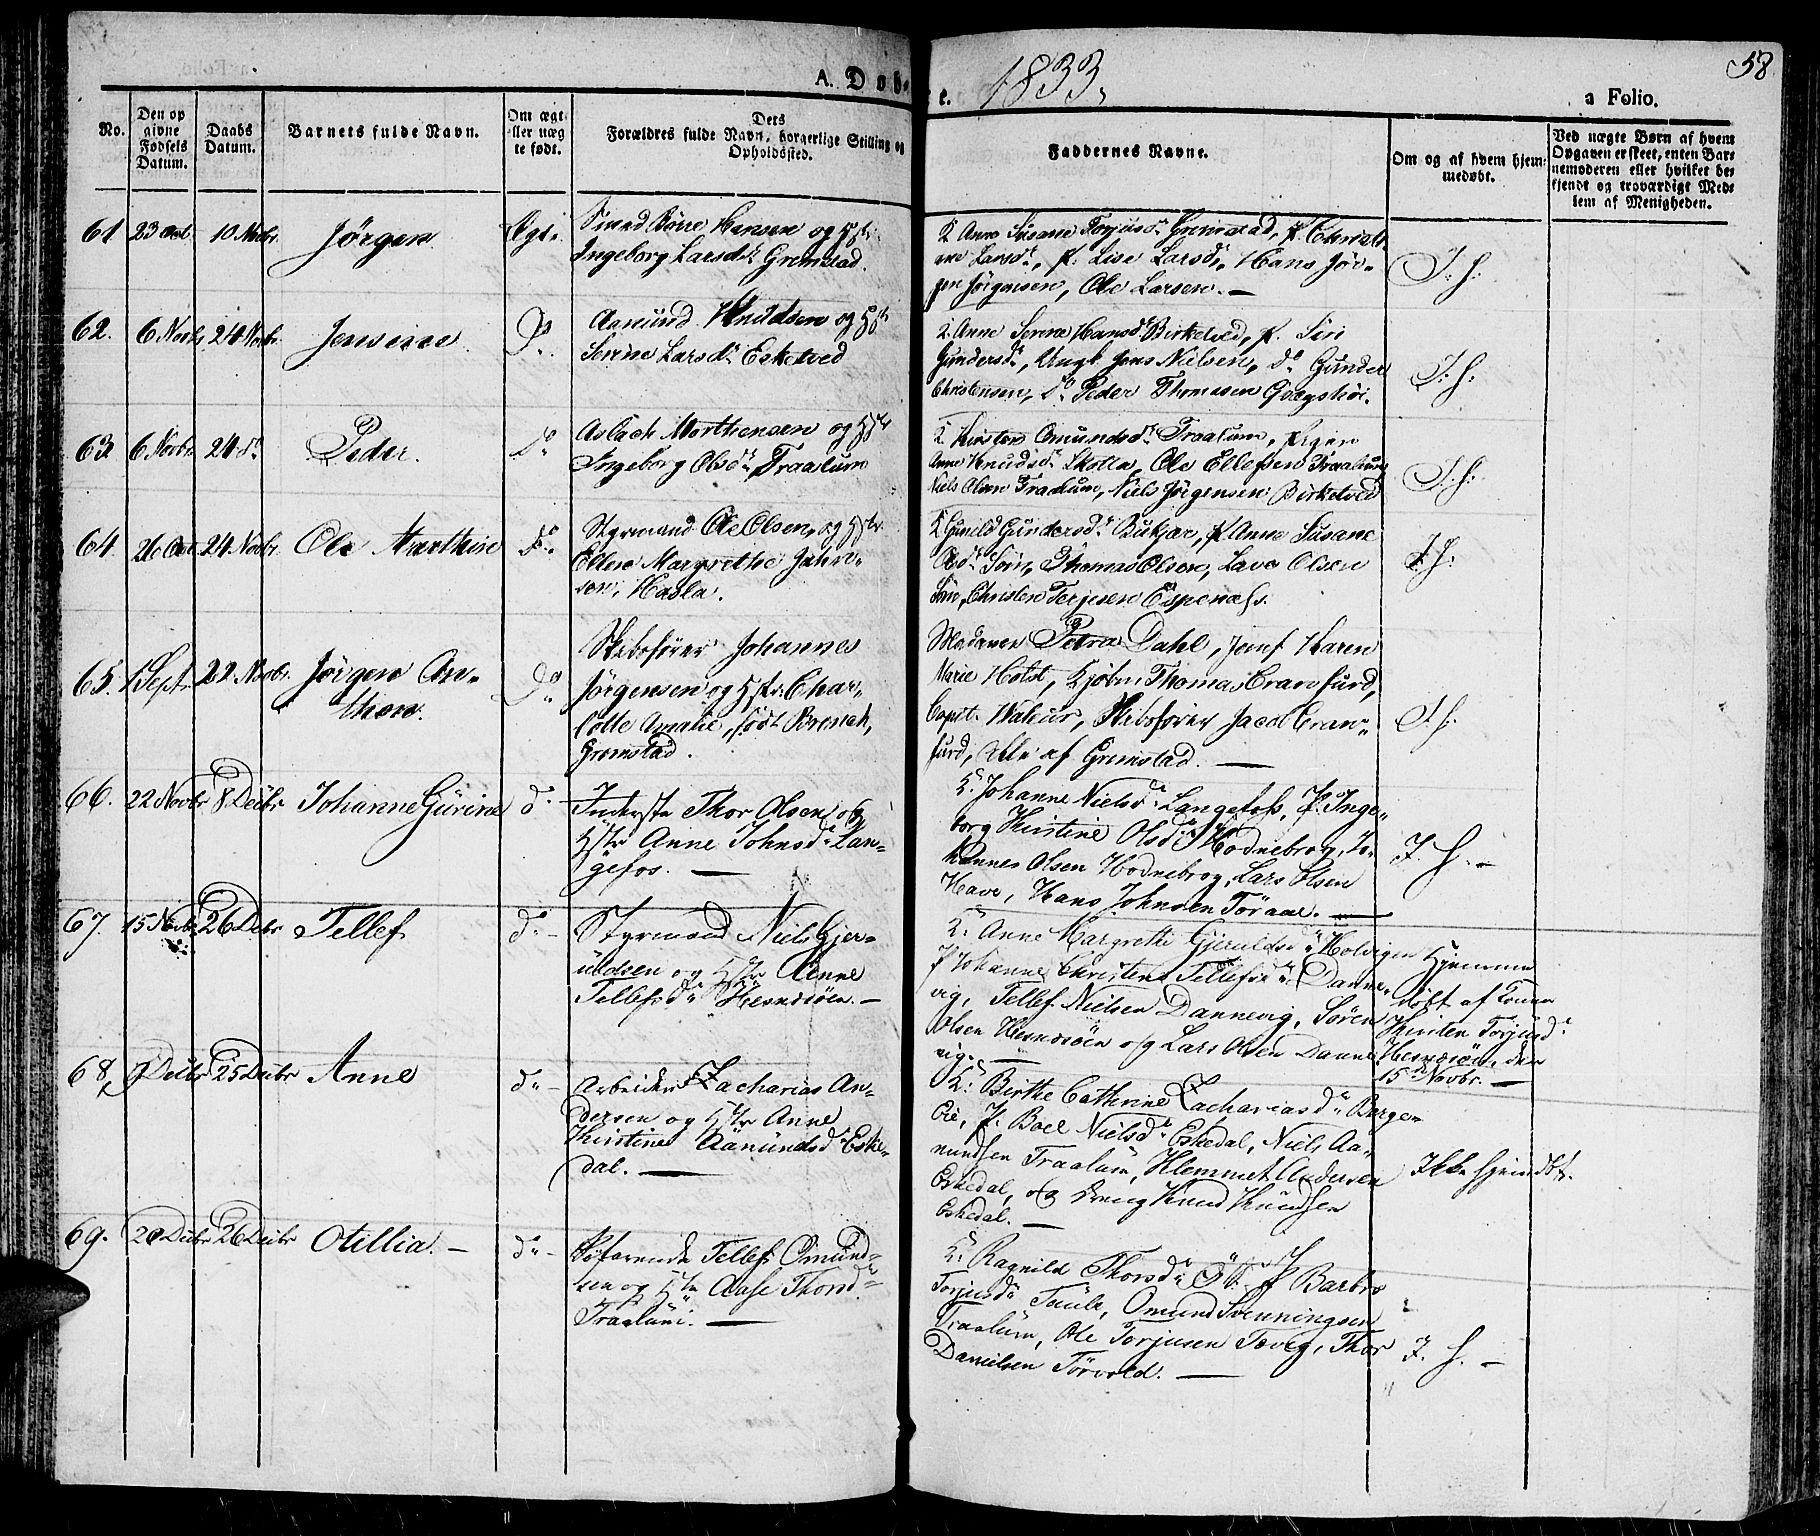 58
A. Døbte. 1833.
a Folio.
No.
Den opgivne Fødsels Datum.
Daabs Datum.
Barnets fulde Navn.
Om ægte eller nægte født.
Ders
Forældres fulde Navn, borgerlige Stilling og
Opholdssted.
Faddernes Navne.
Om og af hvem hjem-
medøbt.
Ved nægte Børn af hvem
Opgaven er skeet, enten Bar-
nemoderen eller hvilket be-
kjendt og troværdigt Med-
lem af Menigheden.
61 23 Oct 10 Novbr. Jörgen Ægt.
Hansen og Hstr
Ingeborg Larsd. Grimstad.
K. Anne Susane Torjusd. Grimstad, P. Christi-
ne Larsd., P. Lise Larsd., Hans Jör-
gen Jörgensen, Ole Larsen. —
I. H.
62. 6 Novbr 24 Novbr. Jensine Do
Aamund Knudsen og Hstr
Serine Larsd. Esketved
K. Anne Serine Hansd. Birketved, P. Siri
Gundersd., Ungk. Jens Nielsen, do Gunder
Christensen, do Peder Thomesen
I. H.
63 6 Novbr 24 do Peder. Do
Aslach Morthensen og Hstr
Ingeborg Olsd. Traalum
K. Kirsten Omundsd. Traalum, Pigen
Anne Knudsd. Skolla, Ole Ellefsen Traalum
Niels Olsen Traalum, Niels Jörgensen Birketved
I. H.
64. 26 Oct 24 Novbr. Ole Marthin Do
Styrmand Ole Olsen og Hstr
Ellen Margrethe Jahn-
sen, Hasla.
K. Gunild Gundersd. Bukjær, P. Anne Susane
Olsd. Thomas Olsen, Lars Olsen
Christen Terjesen Espenæs.
I. H.
65. 1 Sept 22 Novbr. Jörgen An-
thon. Do
Skibsförer Johannes
Jörgensen og Hstr. Char-
lotte Amalie, född
Grimstad.
Madamen Petra Dahl, Jomf Karen
Marie Holst, Kjöbm Thomas Cravfurd,
Capit. Skibsförer Jacob Crav-
furd, Alle af Grimstad. —
I. H.
66. 22 Novbr 8 Decbr Johanne Gurine do
Inderste Thor Olsen og
Hstr Anne Johnsd. Lan-
gefos. —
K. Johanne Nielsd. Langefos, P. Inge-
borg Kirstine Olsd. Hodnebrog, Jo-
hannes Olsen Hodnebrog, Lars Olsen
Have, Hans Johnsen Töraal. —
I. H. —
67. 15 Novbr 26 Decbr Tellef do —
Styrmand Niels Gjer-
uldsen og Hstr Anne
Tellefsd. Hesnesöen. —
K. Anne Margrethe Gjeruldsd. Holvigen
P. Johanne Christine Tellefsd. Danne-
vig, Tellef Nielsen Dannevig, Sören
Olsen Hesnesöen og Lars Olsen Danne-
vig. —
Hjemme-
döbt af Konen
Kirsten Torjusd.
Hesnesöen, den
15 Novbr. —
68, Decbr 25 Decbr Anne do —
Arbeider Zacharias An-
dersen og Hstr Anne
Kirstine Aamundsd. Eske-
dal. —
K. Birthe Cathrine Zachariasd. Berge-
Oie, P. Boel Nielsd. Eskedal, Niels Aa-
mundsen Traalum, Klemmet Andersen
Eskedal, og Dreng Knud Knudsen
Eskedal. —
Ikke hjemdbt.
69. 20 Decbr 26 Decbr Otillia. — do —
Söfarende Tellef Omund-
sen og Hstr Aase Thorsd.
Traalum. —
K. Ragnild Thorsd. P Barbro
Torjusd. Omund Svenningsen
Traalum, Ole Torjusen Tveg, Thor
Danielsen Törvold. —
I. H. —